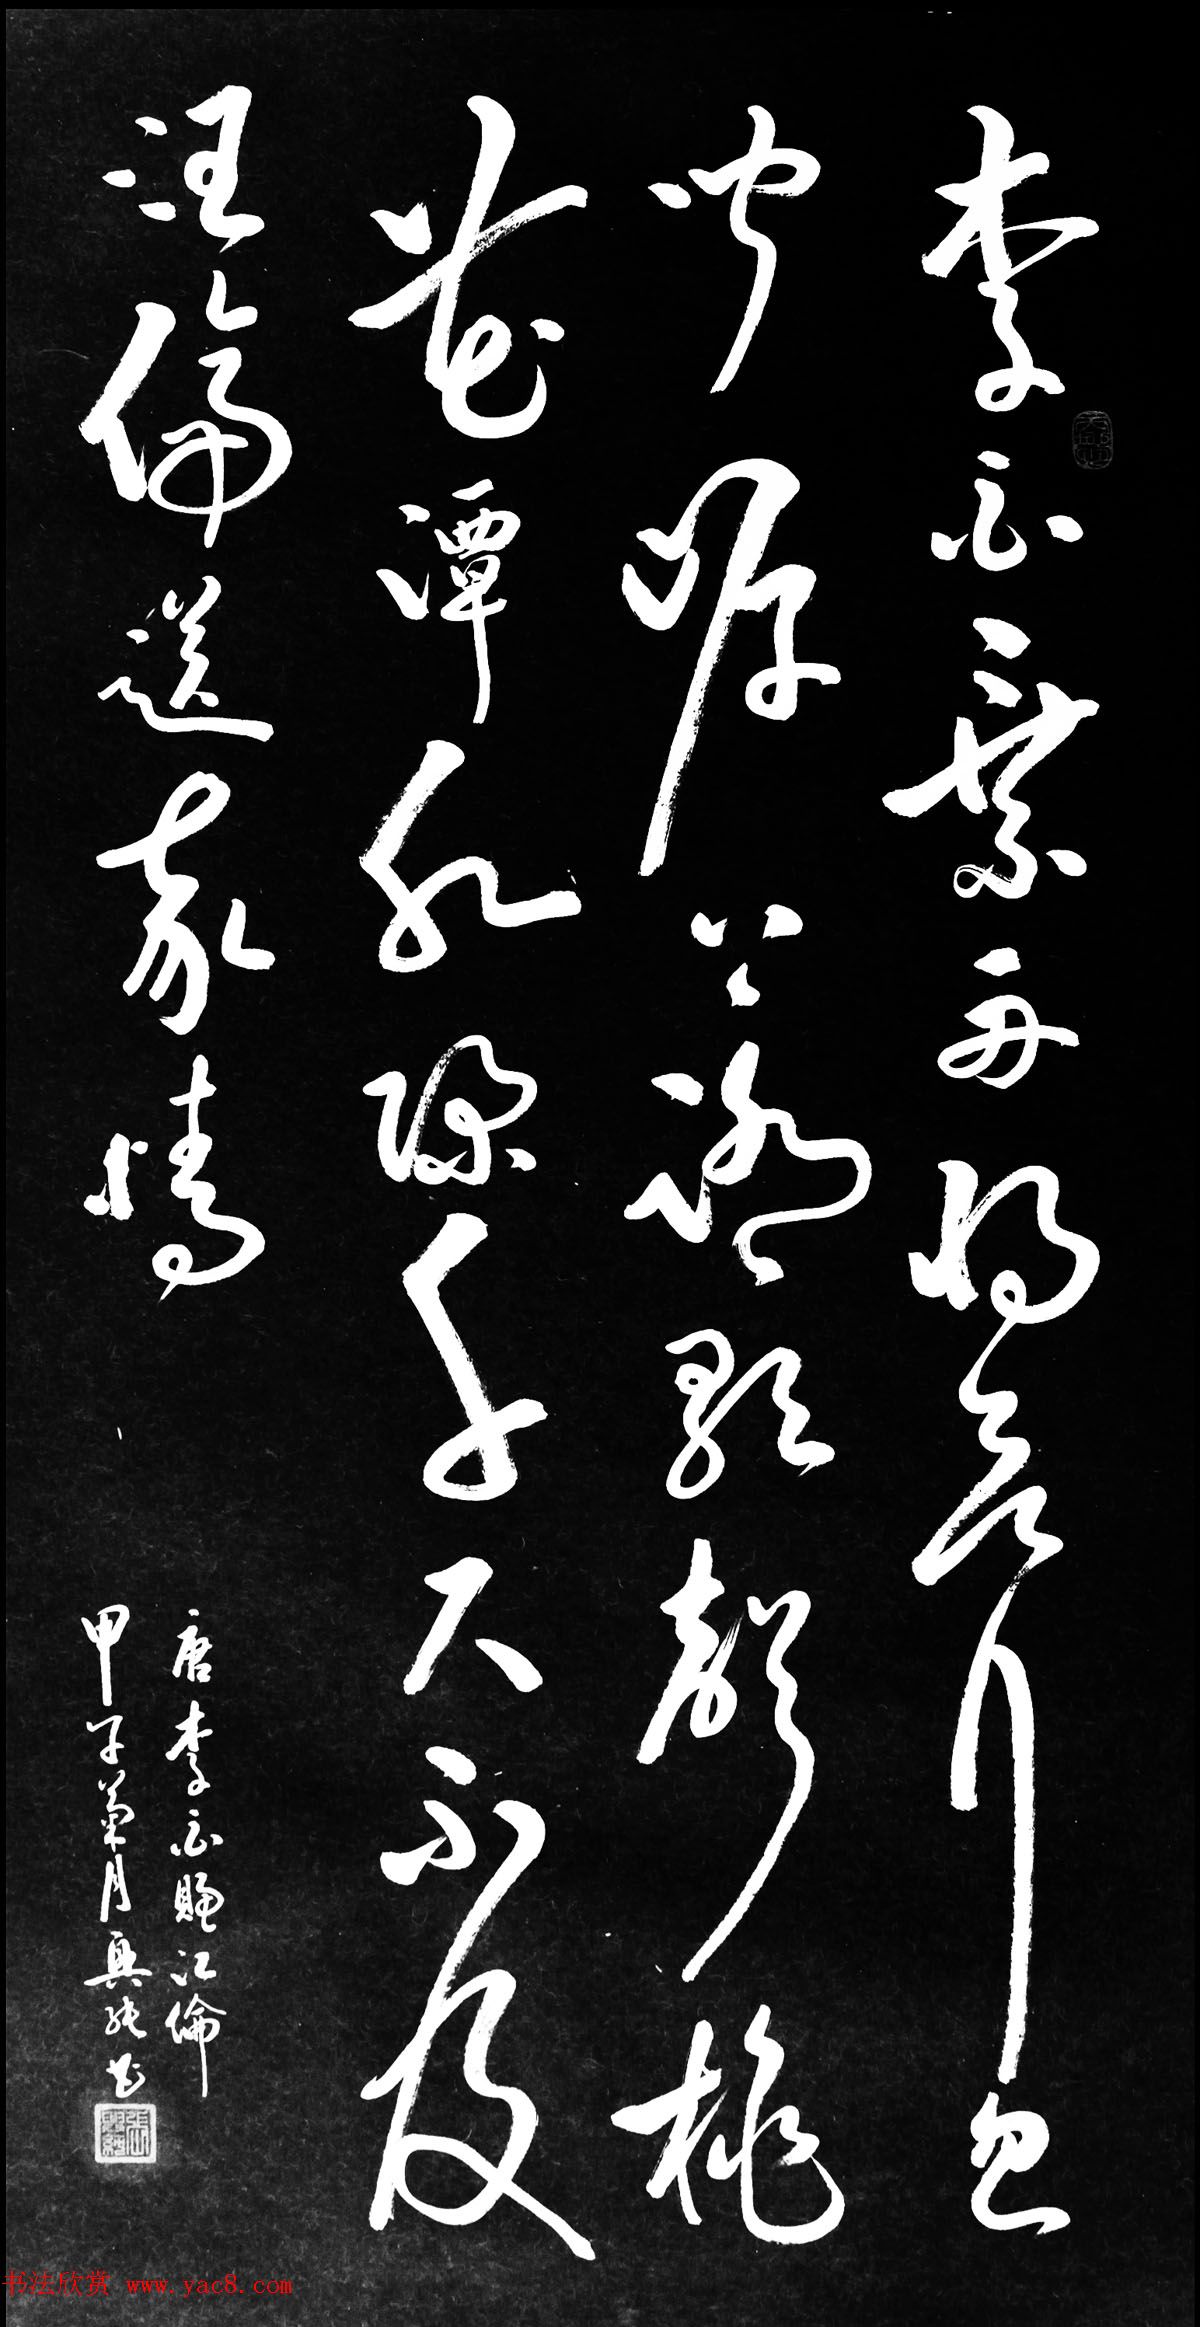 李白乘舟將欲行忽
聞岸上踏歌聲桃
花潭水深千尺不及
汪倫送我情
唐李白贈汪倫
甲子菊月興書
书法欣赏 www.yac8.com